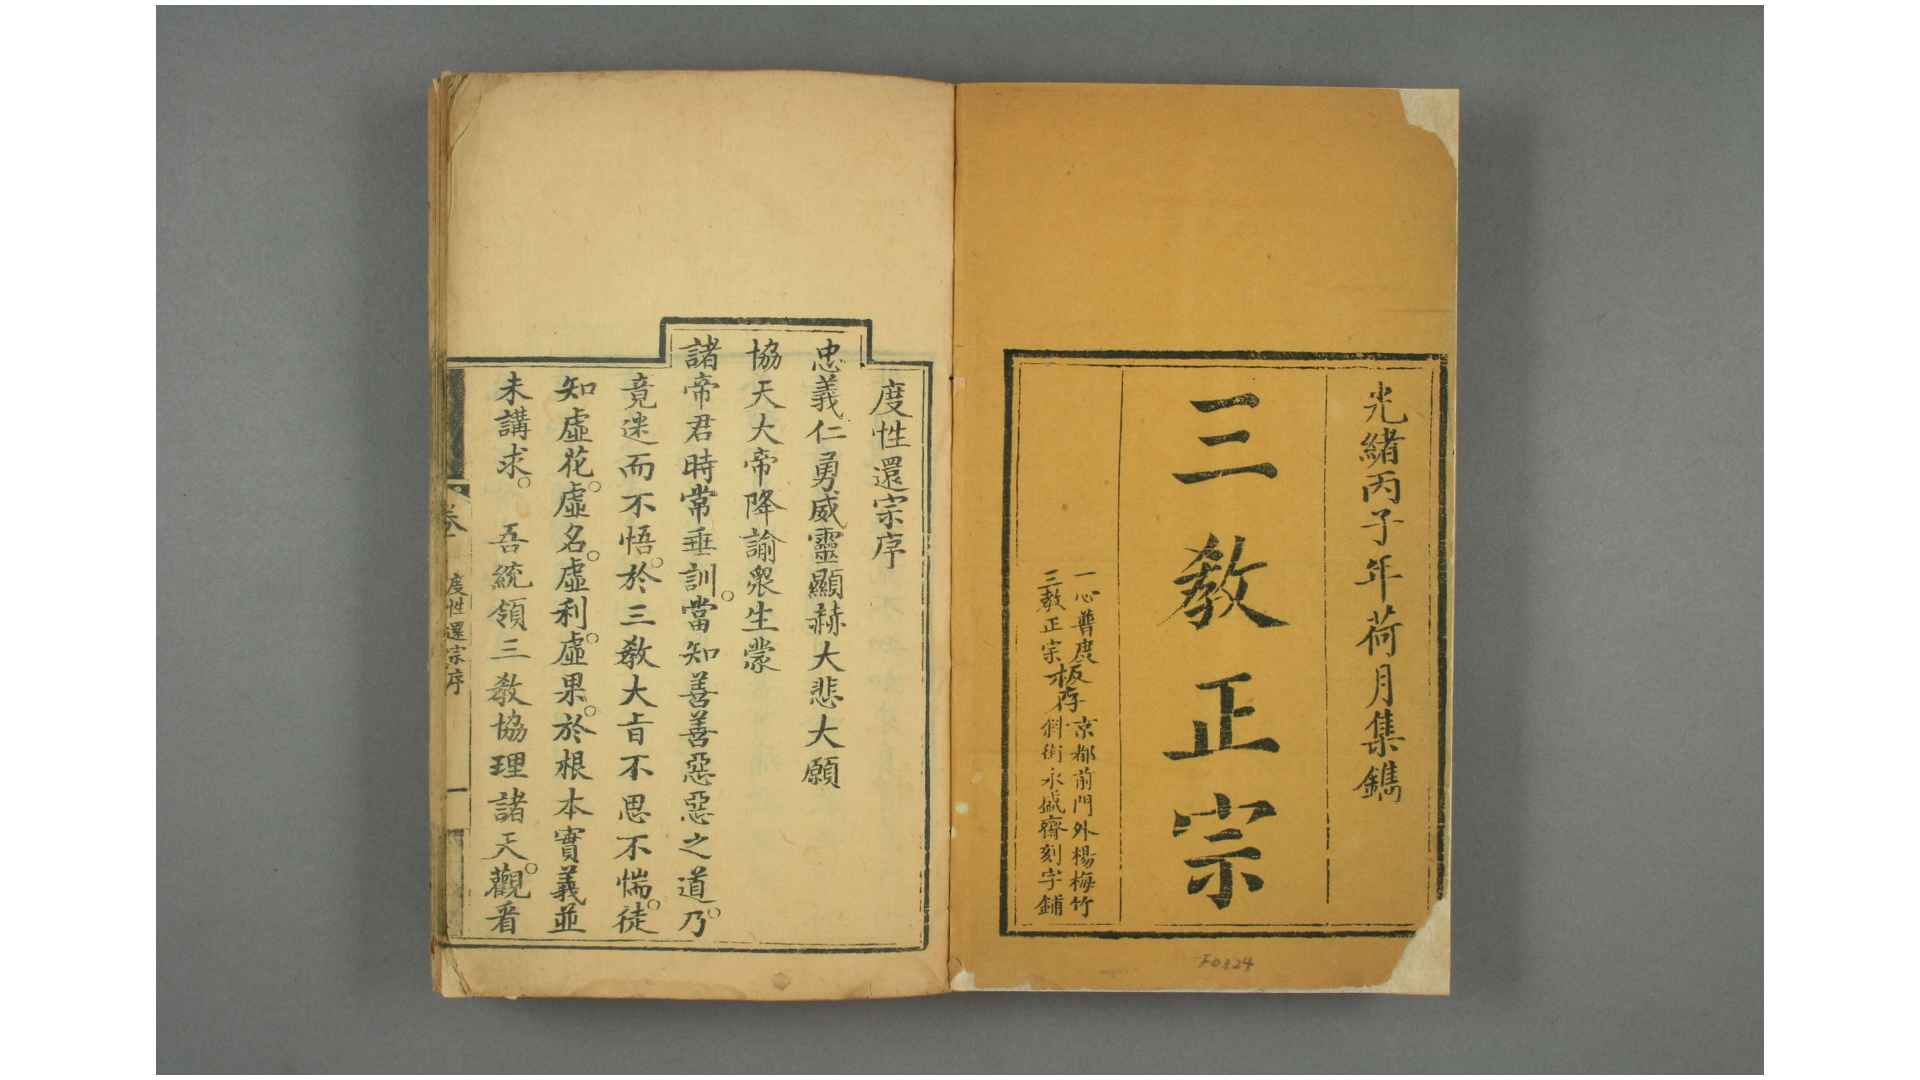 光緒丙子年荷月集鐫
三教正宗
一心普度
三教正宗
板存
京都前門外楊梅竹
斜街永盛齋刻字鋪
F0324
度性還宗序
忠義仁勇威靈顯赫大悲大願
協天大帝降諭衆生蒙
諸帝君時常垂訓。當知善善惡惡之道。乃
竟迷而不悟。於三教大旨不思不惴。徒
知虛花。虛名。虛利。虛果。於根本實義並
未講求。吾統領三教協理諸天。觀看
卷一 度性還宗序 一